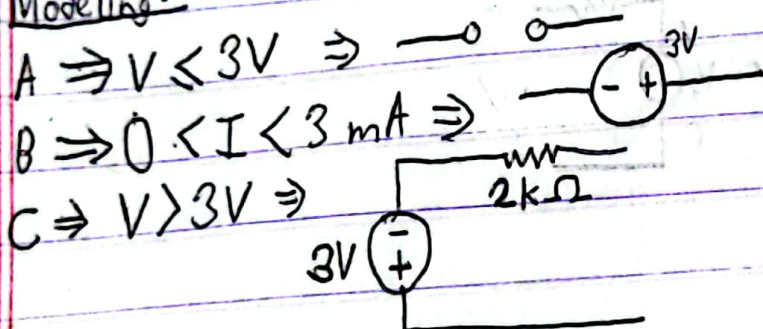 Modeling
A ⇒ V ≤ 3V ⇒
3V
- +
B ⇒ 0 < I < 3 mA ⇒
C ⇒ V > 3V ⇒
2kΩ
3V
-
+